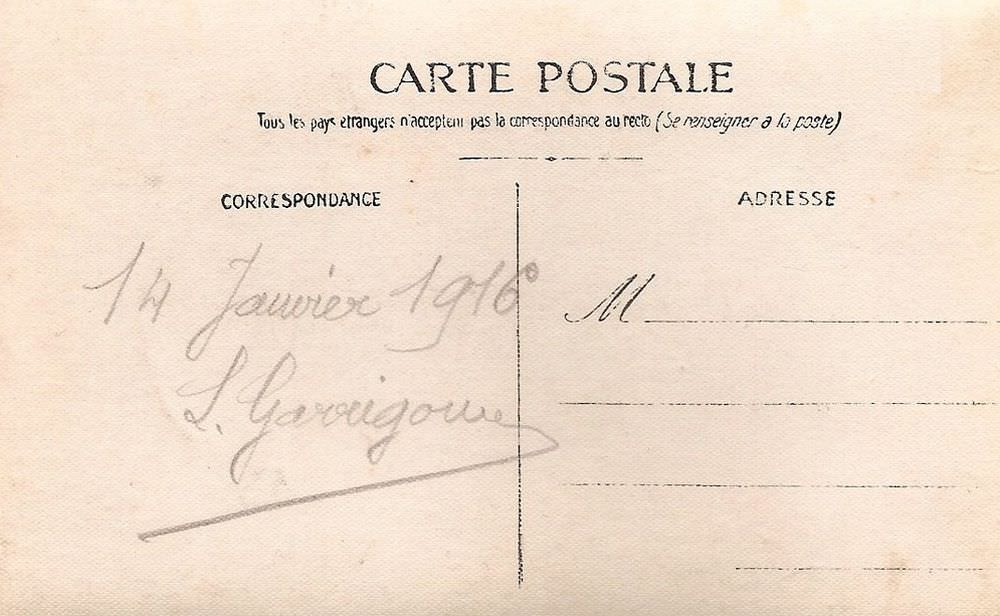 CARTE POSTALE
Tous les pays etrangers n'acceptent pas la correspondance au recto (Se renseigner a la poste)
CORRESPONDANCE
ADRESSE
14 Janvier 1916
M